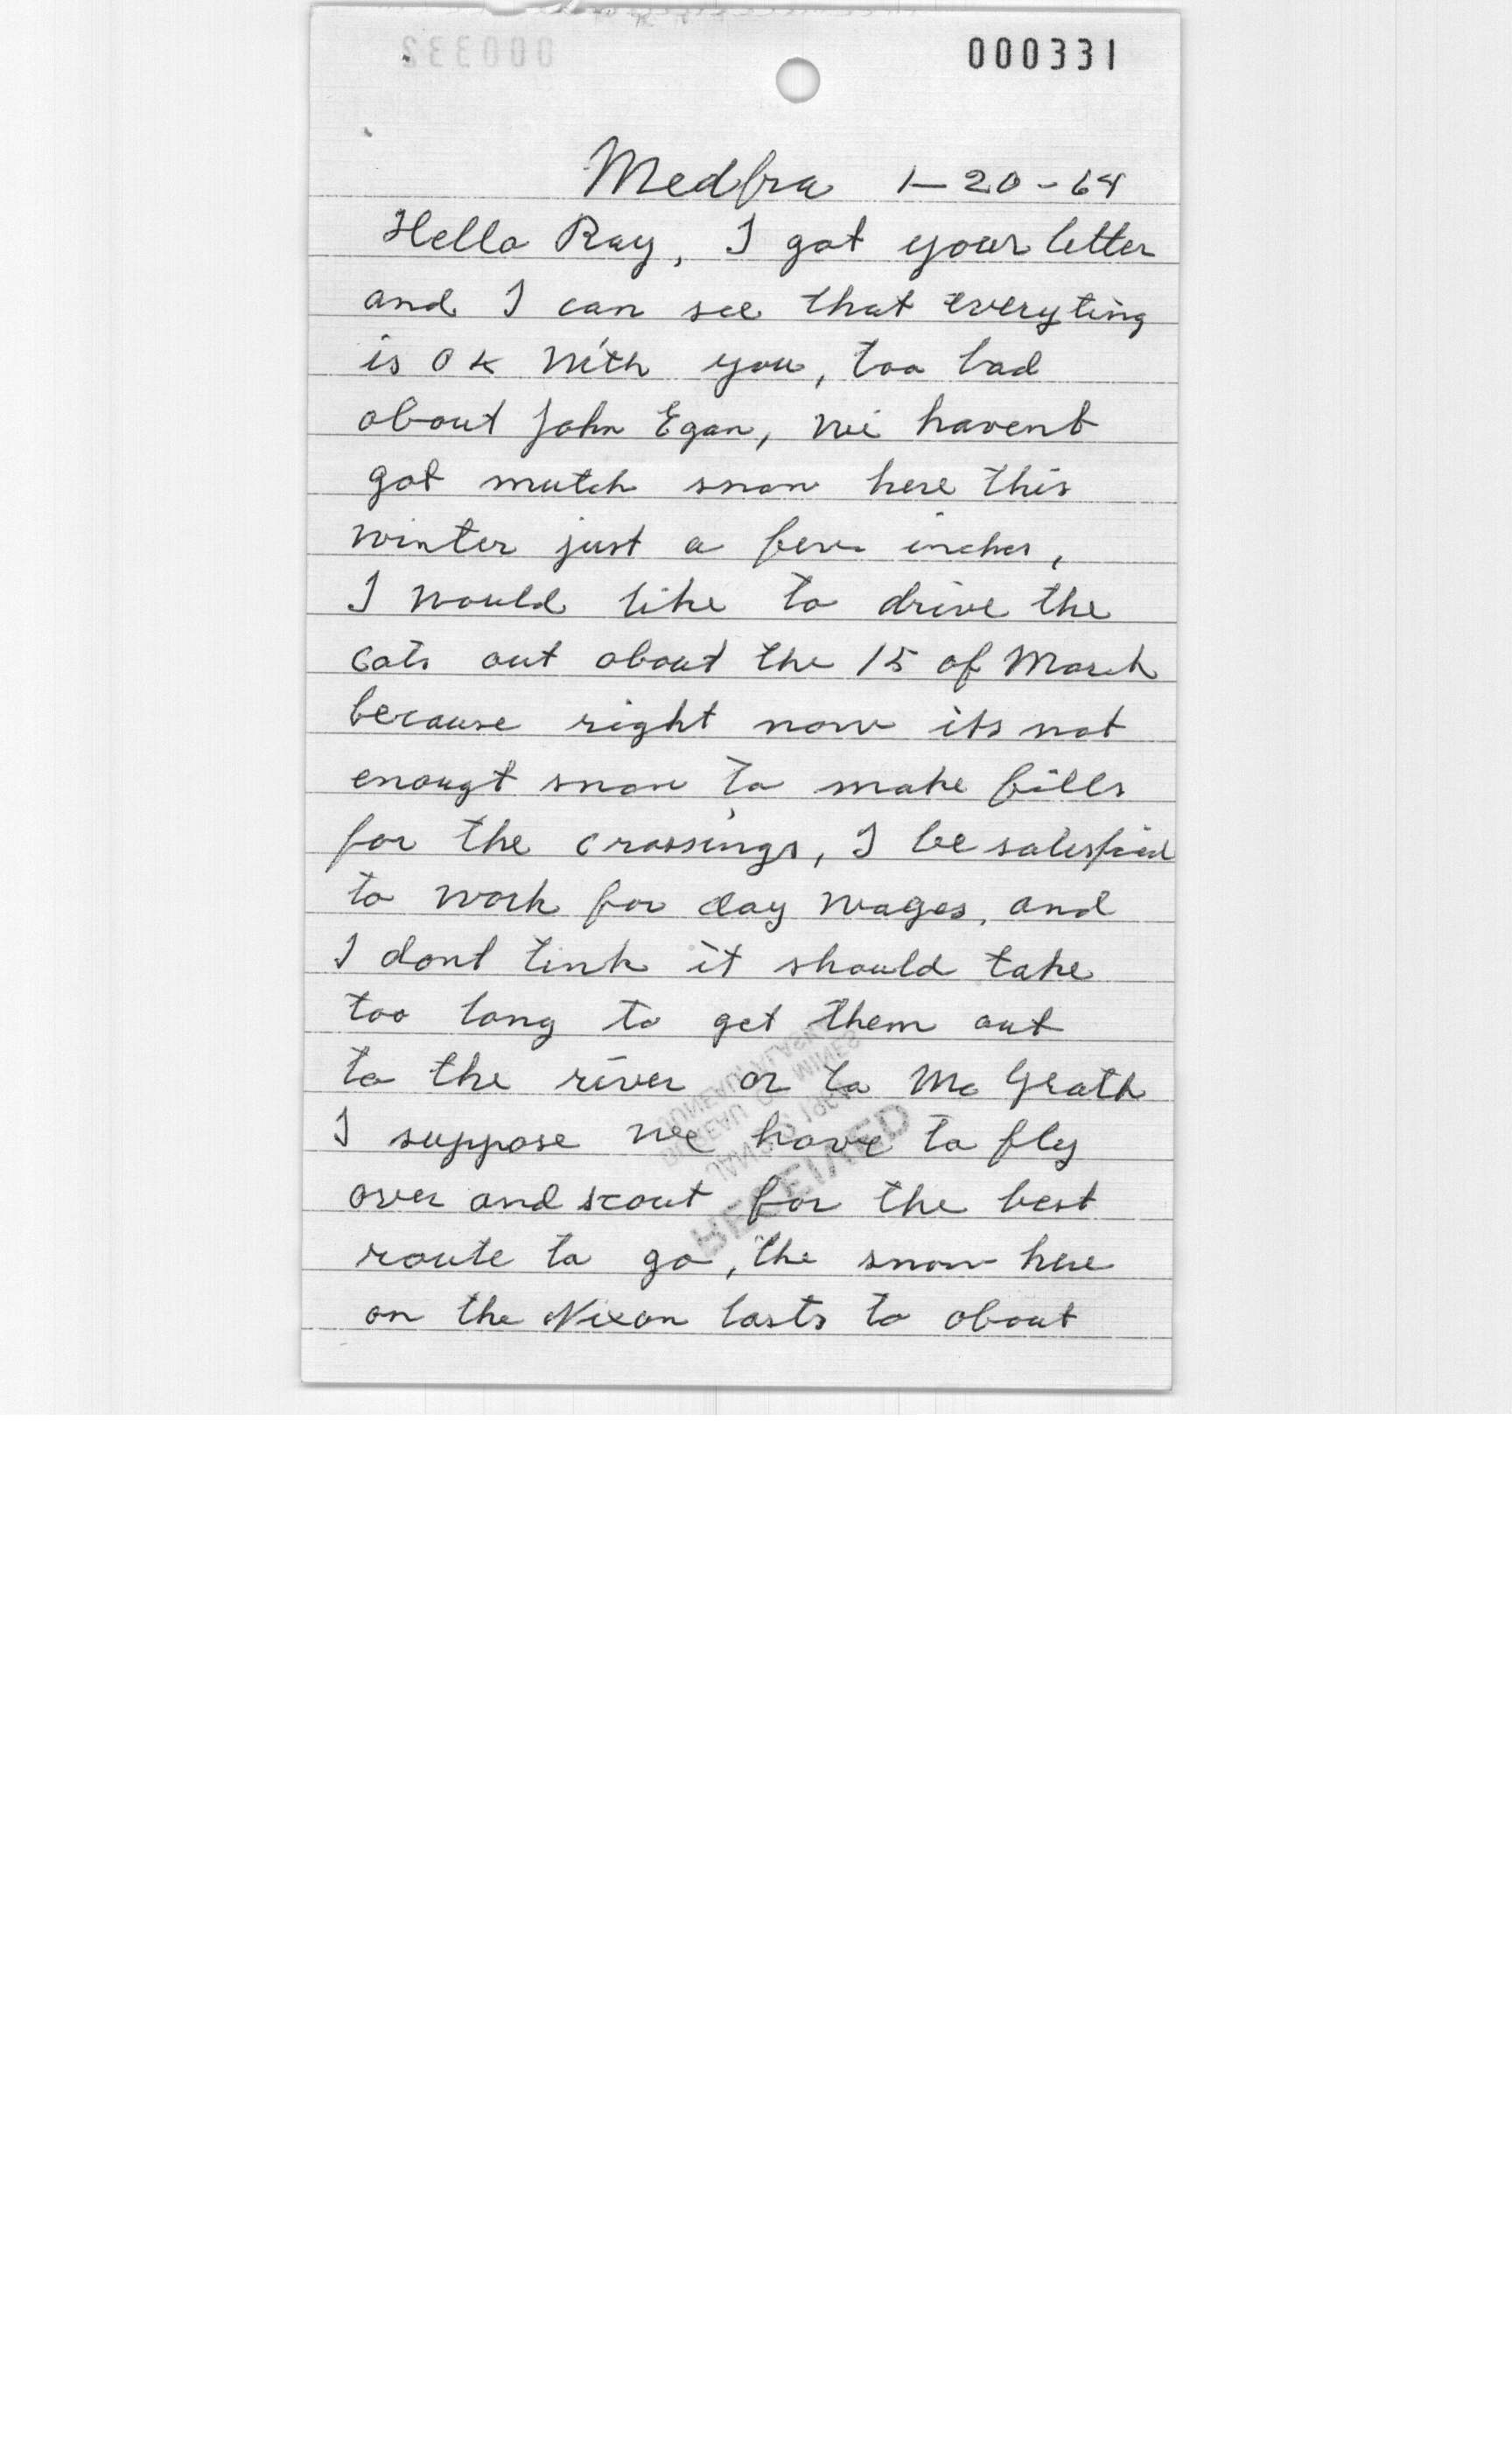 000331
Medfra 1-20-64
Hello Ray, I got your letter
and I can see that everyting
is OK with you, too bad
about John Egan, we havent
got mutch snow here this
winter just a few inches,
I would like to drive the
cats out about the 15 of March
because right now its not
enougt snow to make fills
for the crossings, I be satisfied
to work for day wages, and
I dont tink it should take
too long to get them out
to the river or to Mc Grath
I suppose we have to fly
over and scout for the best
route to go, the snow here
on the Nixon lasts to about
RECEIVED